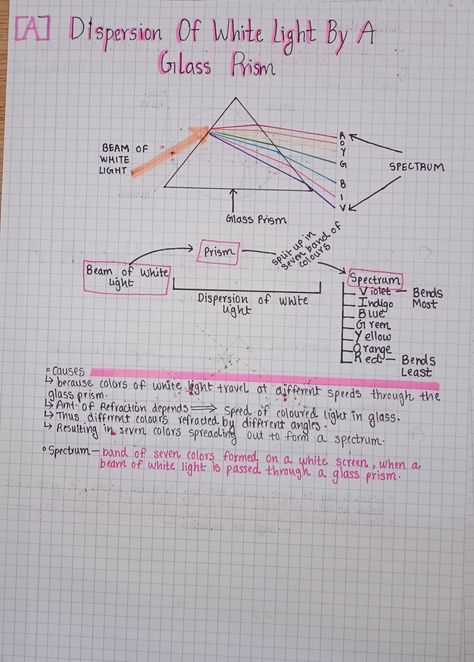 [A] Dispersion Of White Light By A
Glass Prism
BEAM OF
WHITE
LIGHT
R
O
Y
G
B
I
V
SPECTRUM
Glass Prism
Beam of White
light
Prism
split up in
seven band of
colours
Dispersion of white
light
Spectrum
Violet — Bends
Most
Indigo
Blue
Green
Yellow
Orange
Red — Bends
Least
Causes
↳ because colors of white light travel at different speeds through the
glass prism.
↳ Amt. of Refraction depends ⟹ speed of coloured light in glass.
↳ Thus different colours refracted by different angles.
↳ Resulting in seven colors spreading out to form a spectrum.
Spectrum — band of seven colors formed on a white screen, when a
beam of white light is passed through a glass prism.